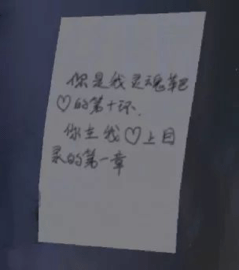 你是我灵魂靶
♡的第十环,
你在我♡上目
录的第一章